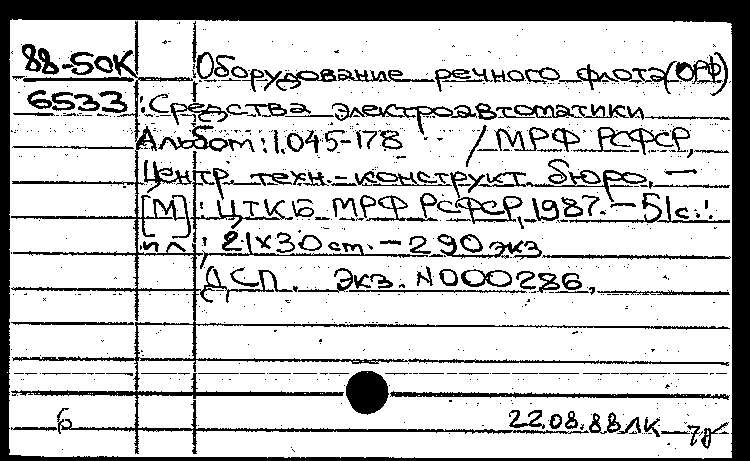 88-50К Оборудование речного флота (ОРФ)
6533 : Средства электроавтоматики
Альбом: 1.045-178 / МРФ РСФСР,
Центр. техн.-конструкт. бюро. —
[М] : ЦТКБ МРФ РСФСР, 1987. — 51 с.:
ил ; 21х30 cm. — 290 экз
ДСП. Экз. N000286.
б 22.08.88 ЛК